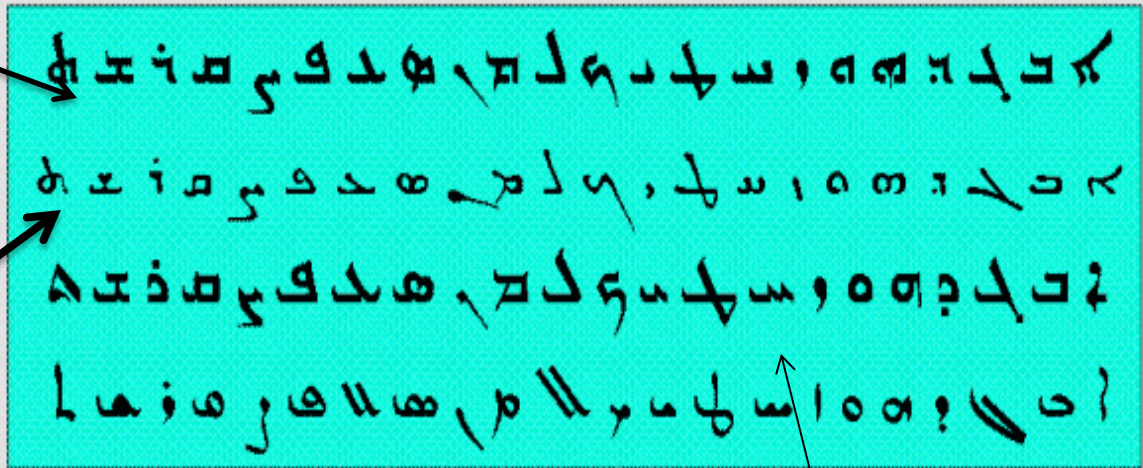 ܐ ܒ ܓ ܕ ܗ ܘ ܙ ܚ ܛ ܝ ܟ ܠ ܡ ܢ ܣ ܥ ܦ ܨ ܩ ܪ ܫ ܬ
ܐ ܒ ܓ ܕ ܗ ܘ ܙ ܚ ܛ ܝ ܟ ܠ ܡ ܢ ܣ ܥ ܦ ܨ ܩ ܪ ܫ ܬ
ܐ ܒ ܓ ܕ ܗ ܘ ܙ ܚ ܛ ܝ ܟ ܠ ܡ ܢ ܣ ܥ ܦ ܨ ܩ ܪ ܫ ܬ
ܐ ܒ ܓ ܕ ܗ ܘ ܙ ܚ ܛ ܝ ܟ ܠ ܡ ܢ ܣ ܥ ܦ ܨ ܩ ܪ ܫ ܬ